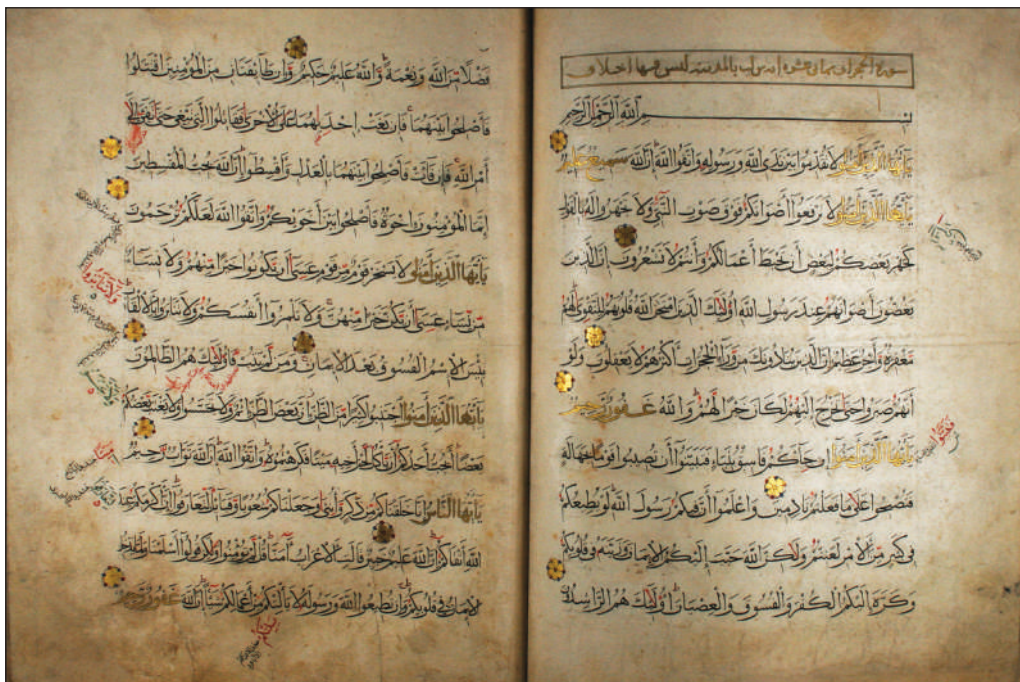 سورة الحجرات ثماني عشرة اية انزلت بالمدينة ليس فيها اختلاف
بِسْمِ اللَّهِ الرَّحْمَنِ الرَّحِيمِ
يَأَيُّهَا الَّذِينَ آمَنُوا لَا تُقَدِّمُوا بَيْنَ يَدَيِ اللَّهِ وَرَسُولِهِ وَاتَّقُوا اللَّهَ إِنَّ اللَّهَ سَمِيعٌ عَلِيمٌ
يَأَيُّهَا الَّذِينَ آمَنُوا لَا تَرْفَعُوا أَصْوَاتَكُمْ فَوْقَ صَوْتِ النَّبِيِّ وَلَا تَجْهَرُوا لَهُ بِالْقَوْلِ
كَجَهْرِ بَعْضِكُمْ لِبَعْضٍ أَنْ تَحْبَطَ أَعْمَالُكُمْ وَأَنْتُمْ لَا تَشْعُرُونَ إِنَّ الَّذِينَ
يَغُضُّونَ أَصْوَاتَهُمْ عِنْدَ رَسُولِ اللَّهِ أُولَئِكَ الَّذِينَ امْتَحَنَ اللَّهُ قُلُوبَهُمْ لِلتَّقْوَى لَهُمْ
مَغْفِرَةٌ وَأَجْرٌ عَظِيمٌ إِنَّ الَّذِينَ يُنَادُونَكَ مِنْ وَرَاءِ الْحُجُرَاتِ أَكْثَرُهُمْ لَا يَعْقِلُونَ وَلَوْ
أَنَّهُمْ صَبَرُوا حَتَّى تَخْرُجَ إِلَيْهِمْ لَكَانَ خَيْرًا لَهُمْ وَاللَّهُ غَفُورٌ رَحِيمٌ
يَأَيُّهَا الَّذِينَ آمَنُوا إِنْ جَاءَكُمْ فَاسِقٌ بِنَبَاءٍ فَتَبَيَّنُوا أَنْ تُصِيبُوا قَوْمًا بِجَهَالَةٍ
فَتُصْبِحُوا عَلَى مَا فَعَلْتُمْ نَادِمِينَ وَاعْلَمُوا أَنَّ فِيكُمْ رَسُولَ اللَّهِ لَوْ يُطِيعُكُمْ
فِي كَثِيرٍ مِنَ الْأَمْرِ لَعَنِتُّمْ وَلَكِنَّ اللَّهَ حَبَّبَ إِلَيْكُمُ الْإِيمَانَ وَزَيَّنَهُ فِي قُلُوبِكُمْ
وَكَرَّهَ إِلَيْكُمُ الْكُفْرَ وَالْفُسُوقَ وَالْعِصْيَانَ أُولَئِكَ هُمُ الرَّاشِدُونَ
فَضْلًا مِنَ اللَّهِ وَنِعْمَةً وَاللَّهُ عَلِيمٌ حَكِيمٌ وَإِنْ طَائِفَتَانِ مِنَ الْمُؤْمِنِينَ اقْتَتَلُوا
فَأَصْلِحُوا بَيْنَهُمَا فَإِنْ بَغَتْ إِحْدَيهُمَا عَلَى الْأُخْرَى فَقَاتِلُوا الَّتِي تَبْغِي حَتَّى تَفِيءَ إِلَى
أَمْرِ اللَّهِ فَإِنْ فَاءَتْ فَأَصْلِحُوا بَيْنَهُمَا بِالْعَدْلِ وَأَقْسِطُوا إِنَّ اللَّهَ يُحِبُّ الْمُقْسِطِينَ
إِنَّمَا الْمُؤْمِنُونَ إِخْوَةٌ فَأَصْلِحُوا بَيْنَ أَخَوَيْكُمْ وَاتَّقُوا اللَّهَ لَعَلَّكُمْ تُرْحَمُونَ
يَأَيُّهَا الَّذِينَ آمَنُوا لَا يَسْخَرْ قَوْمٌ مِنْ قَوْمٍ عَسَى أَنْ يَكُونُوا خَيْرًا مِنْهُمْ وَلَا نِسَاءٌ
مِنْ نِسَاءٍ عَسَى أَنْ يَكُنَّ خَيْرًا مِنْهُنَّ وَلَا تَلْمِزُوا أَنْفُسَكُمْ وَلَا تَنَابَزُوا بِالْأَلْقَابِ
بِئْسَ الِاسْمُ الْفُسُوقُ بَعْدَ الْإِيمَانِ وَمَنْ لَمْ يَتُبْ فَأُولَئِكَ هُمُ الظَّالِمُونَ
يَأَيُّهَا الَّذِينَ آمَنُوا اجْتَنِبُوا كَثِيرًا مِنَ الظَّنِّ إِنَّ بَعْضَ الظَّنِّ إِثْمٌ وَلَا تَجَسَّسُوا وَلَا يَغْتَبْ بَعْضُكُمْ
بَعْضًا أَيُحِبُّ أَحَدُكُمْ أَنْ يَأْكُلَ لَحْمَ أَخِيهِ مَيْتًا فَكَرِهْتُمُوهُ وَاتَّقُوا اللَّهَ إِنَّ اللَّهَ تَوَّابٌ رَحِيمٌ
يَأَيُّهَا النَّاسُ إِنَّا خَلَقْنَاكُمْ مِنْ ذَكَرٍ وَأُنْثَى وَجَعَلْنَاكُمْ شُعُوبًا وَقَبَائِلَ لِتَعَارَفُوا إِنَّ أَكْرَمَكُمْ عِنْدَ
اللَّهِ أَتْقَاكُمْ إِنَّ اللَّهَ عَلِيمٌ خَبِيرٌ قَالَتِ الْأَعْرَابُ آمَنَّا قُلْ لَمْ تُؤْمِنُوا وَلَكِنْ قُولُوا أَسْلَمْنَا وَلَمَّا يَدْخُلِ
الْإِيمَانُ فِي قُلُوبِكُمْ وَإِنْ تُطِيعُوا اللَّهَ وَرَسُولَهُ لَا يَأْلِتْكُمْ مِنْ أَعْمَالِكُمْ شَيْئًا إِنَّ اللَّهَ غَفُورٌ رَحِيمٌ